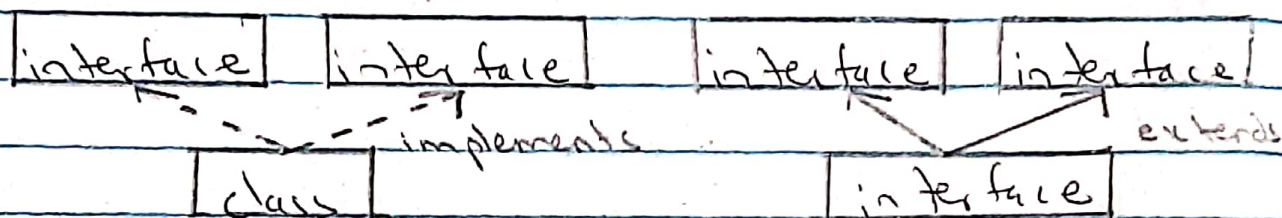 interface interface interface interface
implements extends
class interface